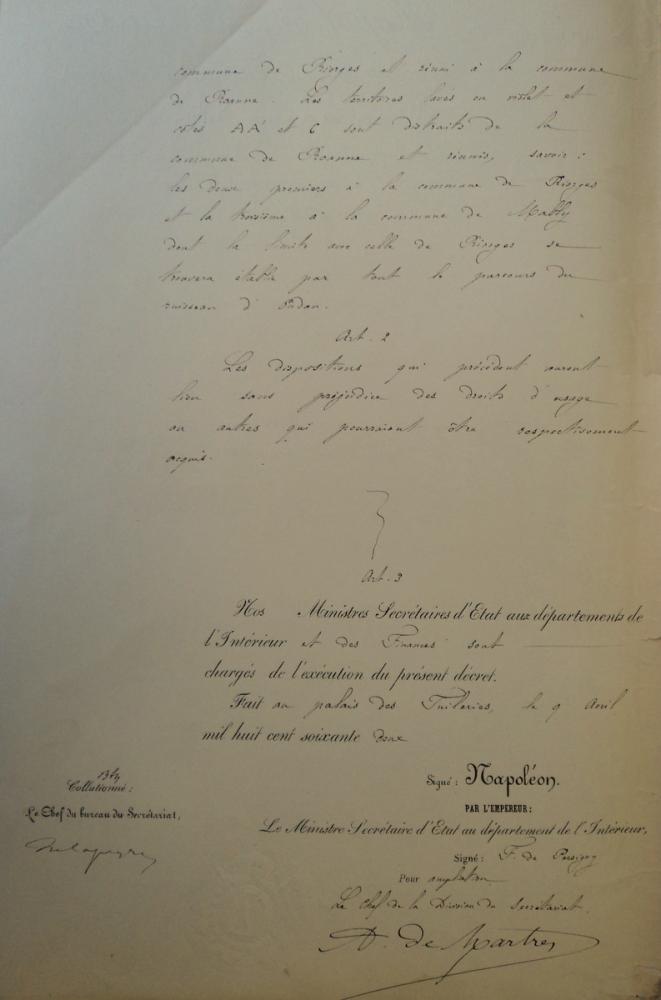 commune de Riorges et réuni à la commune
de Roanne. Les territoires lavés en violet et
cotés AA' et C sont distraits de la
commune de Roanne et réunis, savoir :
les deux premiers à la commune de Riorges
et la troisième à la commune de Mably
dont la limite avec celle de Riorges se
trouvera établie par tout le parcours du
ruisseau d'Oudan.
Art. 2
Les dispositions qui précèdent auront
lieu sans préjudice des droits d'usage
ou autres qui pourraient être respectivement
acquis.
Art. 3
Nos Ministres Secrétaires d'Etat aux départements de
l'Intérieur et des Finances sont
chargés de l'exécution du présent décret.
Fait au palais des Tuileries, le 9 Avril
mil huit cent soixante deux
Signé : Napoléon.
PAR L'EMPEREUR :
Le Ministre Secrétaire d'Etat au département de l'Intérieur,
Signé : F. de Persigny
Pour ampliation
Le Chef de la Division du Secrétariat.
A. de Martres
Collationné :
Le Chef du bureau du Secrétariat,